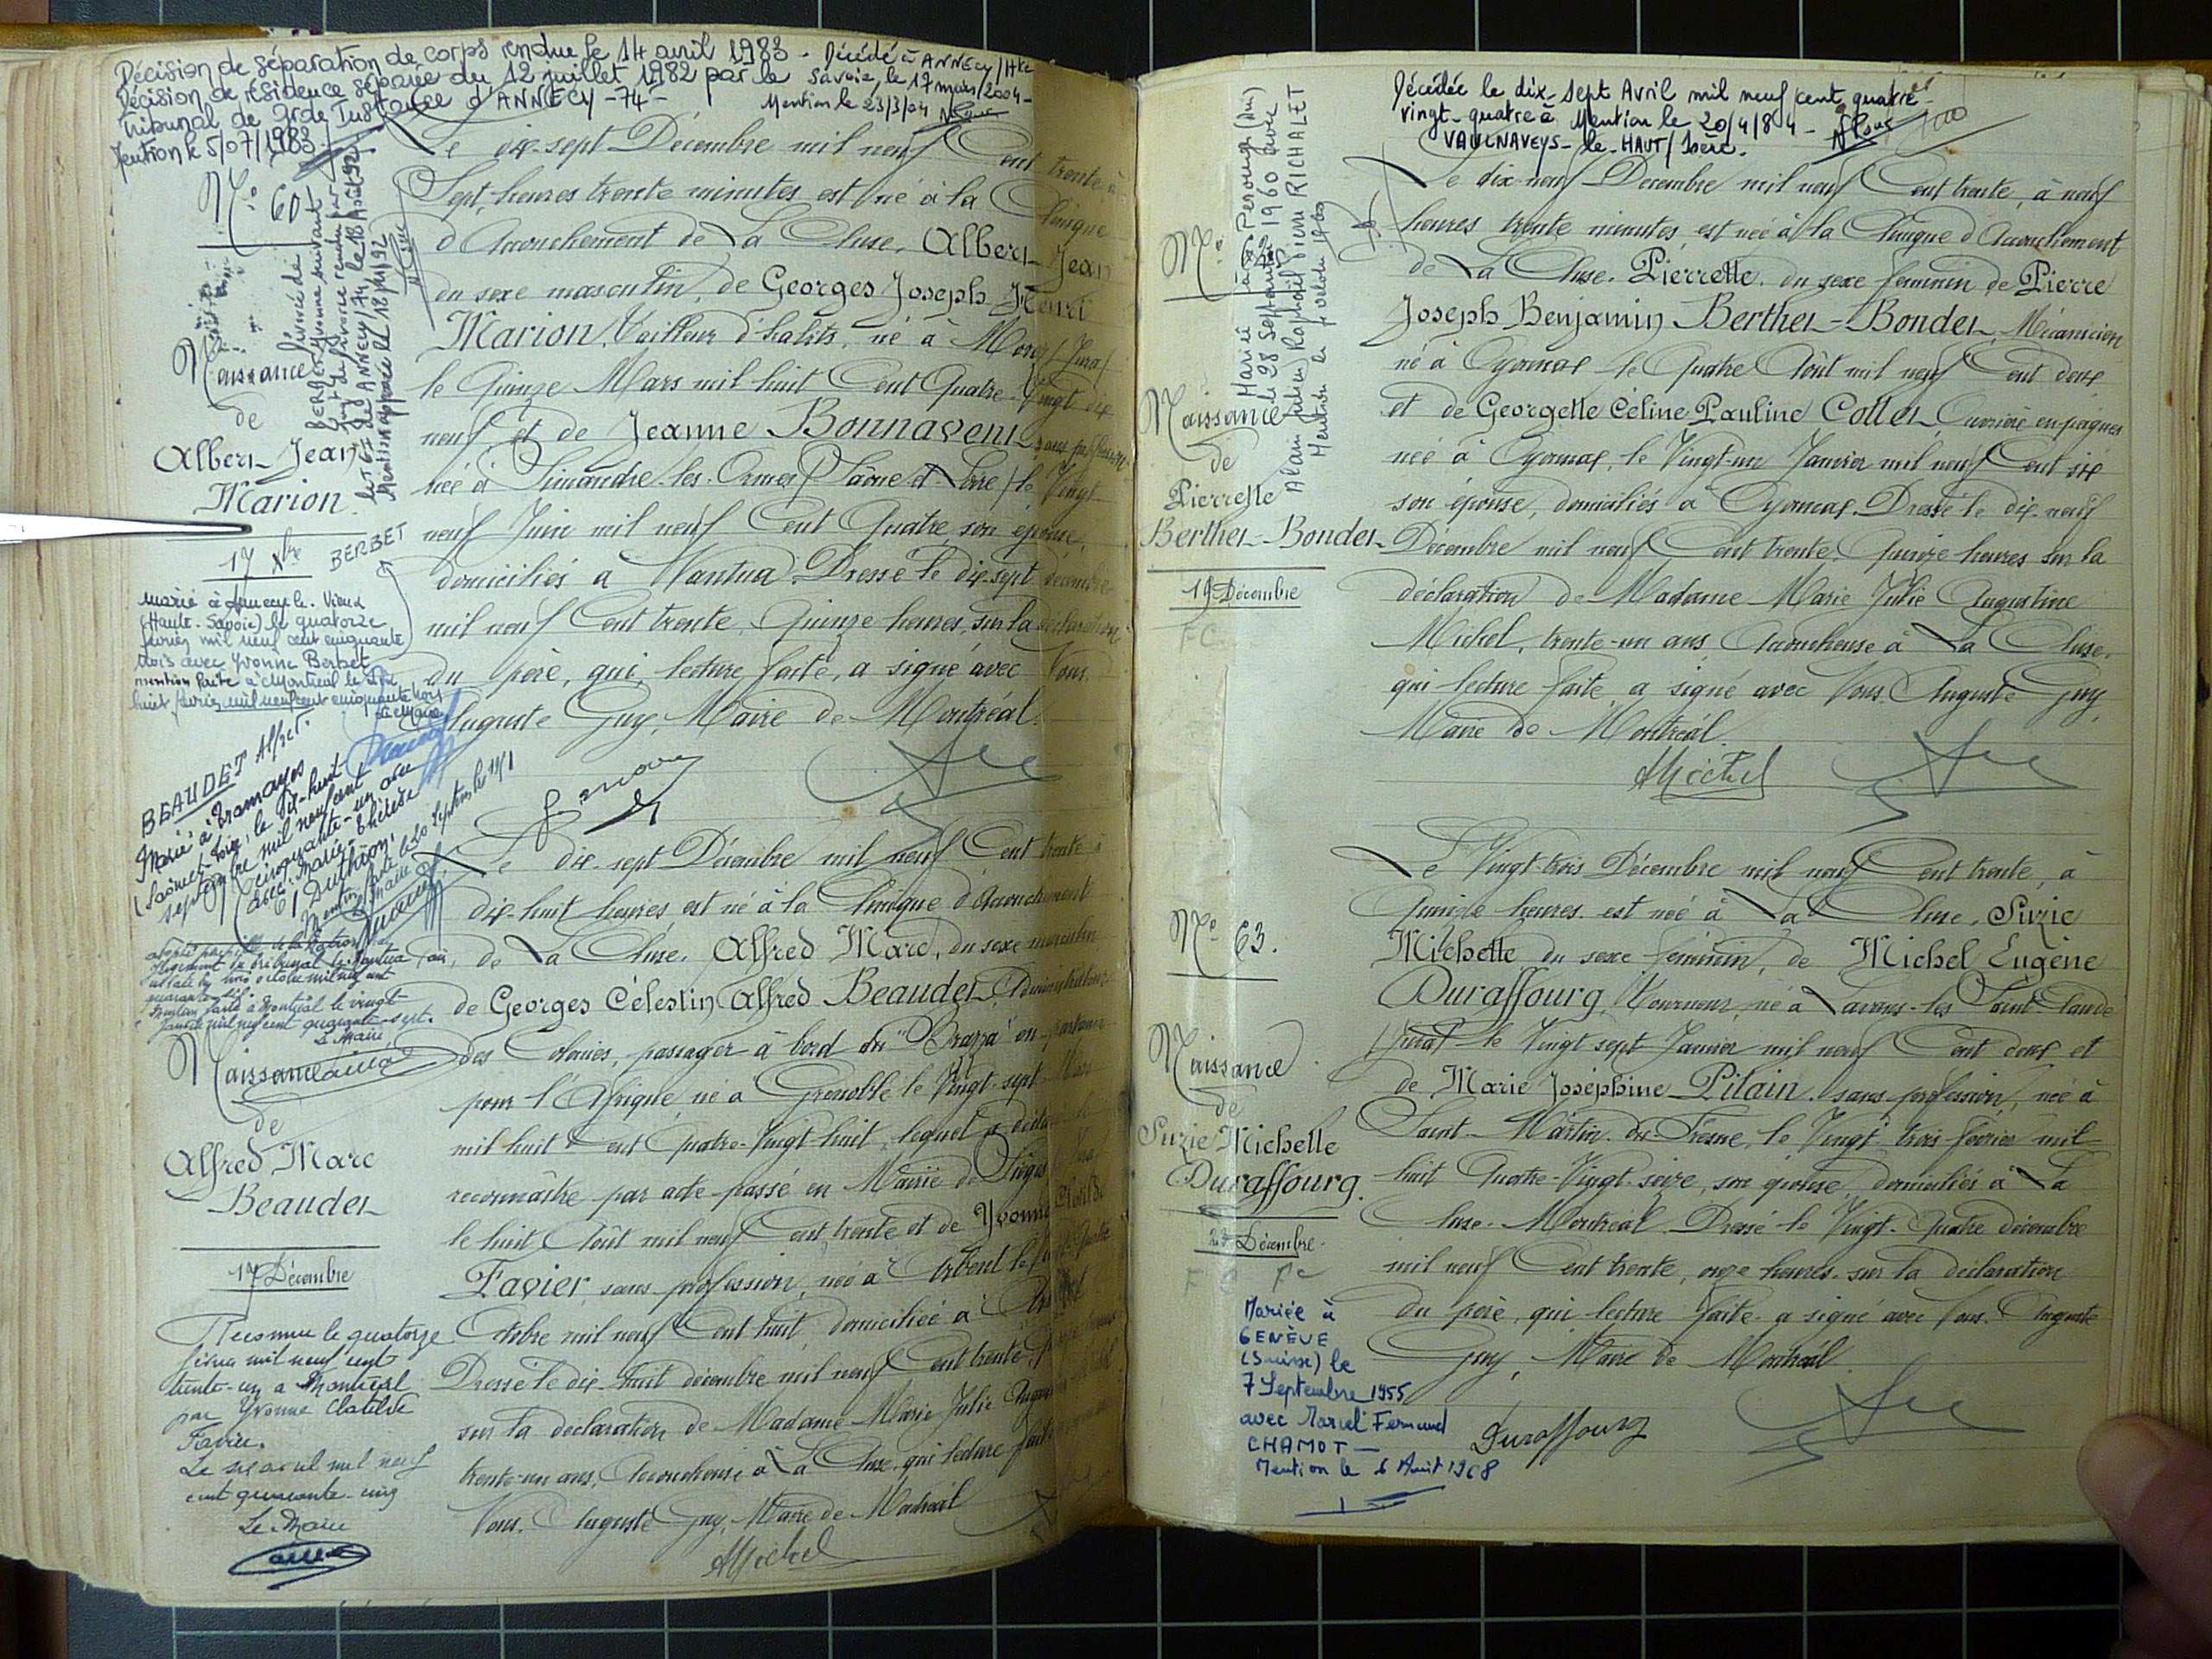 Décision de séparation de corps rendue le 14 avril 1983 -
Décision de résidence séparée du 12 juillet 1982 par le
Tribunal de Grde Instance d'ANNECY -74-
Mention le 5/07/1983
Décédé à ANNECY/Hte
Savoie, le 17 mars 2004 -
Mention le 23/3/04
N° 60
Divorcé de
BERBET Yvonne suivant
jugt de divorce rendu par
le T G I de ANNECY/74, le 18 Août 92
Mention apposée le 18/11/92
Naissance
de
Albert Jean
Marion
17 Xbre
BERBET
Marié à Annecy-le-Vieux
(Haute-Savoie) le quatorze
février mil neuf cent cinquante
trois avec Yvonne Berbet
mention faite à Montréal le dix
huit février mil neuf cent cinquante trois
Le Maire
Le dix-sept Décembre mil neuf Cent trente à
Sept heures trente minutes est né à la Clinique
d'Accouchement de La Cluse, Albert Jean
du sexe masculin, de Georges Joseph Henri
Marion, Tailleur d'habits, né à Morez /Jura/
le Quinze Mars mil huit Cent Quatre-Vingt dix
neuf et de Jeanne Bonnavent sans profession
née à Simandre-les-Ormes /Saône et Loire/ le Vingt
neuf Juin mil neuf Cent Quatre, son épouse,
domiciliés à Nantua. Dressé le dix-sept décembre
mil neuf Cent trente, Quinze heures, sur la déclaration
du père, qui, lecture faite, a signé avec Nous.
Auguste Guy, Maire de Montréal.
BEAUDET Alfret.
Marié à Tramayes
(Saône-et-Loire) le dix-huit
septembre mil neuf cent
cinquante-un avec
Marie-Thérèse
Duthion
Mention faite le 20 Septembre 1951
Le Maire
Adopté par la Nation
Jugement du tribunal de Nantua
en date du trois octobre mil neuf cent
quarante six
Mention faite à Montréal le vingt
janvier mil neuf cent quarante-sept.
Le Maire
Naissance
de
Alfred Marc
Beaudet
17 Décembre
Reconnu le quatorze
février mil neuf cent
trente-un à Montréal
par Yvonne Clotilde
Favier.
Le six avril mil neuf
cent quarante-cinq
Le Maire
Le dix-sept Décembre mil neuf Cent trente à
dix-huit heures est né à la Clinique d'Accouchement
de La Cluse, Alfred Marc, du sexe masculin
de Georges Célestin Alfred Beaudet, Administrateur
des Colonies, passager à bord du "Brazza" en partance
pour l'Afrique, né à Grenoble le Vingt-sept Mars
mil huit Cent Quatre-Vingt huit, lequel a déclaré le
reconnaître par acte passé en Mairie de
le huit Août mil neuf Cent trente et de Yvonne Clotilde
Favier, sans profession, née à Arbent le
Octobre mil neuf Cent huit domiciliée à
Dressé le dix-huit décembre mil neuf Cent trente,
sur la déclaration de Madame Marie Julie
trente-un ans, Accoucheuse à La Cluse, qui lecture faite
Nous. Auguste Guy, Maire de Montréal
AMichel
Décédée le dix sept Avril mil neuf cent quatre-
vingt-quatre à
VAULNAVEYS-le-HAUT/Isère.
Mention le 20/4/84 -
N°
Mariée à Pérouges (Ain)
le 28 Septembre 1960 avec
Alain Julien Raphaël Pierre RICHALET
Mention
Naissance
de
Pierrette
Berthet-Bondet
19 Décembre
FC
Le dix-neuf Décembre mil neuf Cent trente, à neuf
heures trente minutes, est née à la Clinique d'Accouchement
de La Cluse. Pierrette, du sexe féminin de Pierre
Joseph Benjamin Berthet-Bondet, Mécanicien
né à Oyonnax le Quatre Août mil neuf Cent deux
et de Georgette Céline Pauline Collet, Ouvrière en peignes
née à Oyonnax, le Vingt-un Janvier mil neuf Cent six
son épouse, domiciliés à Oyonnax. Dressé le dix-neuf
Décembre mil neuf Cent trente Quinze heures sur la
déclaration de Madame Marie Julie Augustine
Michel, trente-un ans Accoucheuse à La Cluse,
qui lecture faite, a signé avec Nous. Auguste Guy,
Maire de Montréal.
AMichel
N° 63.
Naissance
de
Suzie Michelle
Duraffourg.
23 Décembre
Mariée à
GENÈVE
(Suisse) le
7 Septembre 1955
avec Marcel Fernand
CHAMOT -
Mention le 6 Août 1968
Le Vingt-trois Décembre mil neuf Cent trente, à
Quinze heures, est née à La Cluse, Suzie
Michelle du sexe féminin, de Michel Eugène
Duraffourg, Tourneur, né à Lavans-les-Saint-Claude
/Jura/ le Vingt sept Janvier mil neuf Cent deux et
de Marie Joséphine Pilain, sans profession, née à
Saint-Martin-du-Fresne, le Vingt-trois février mil
huit Quatre-Vingt-seize, son épouse, domiciliés à La
Cluse-Montréal. Dressé le Vingt-Quatre décembre
mil neuf Cent trente, onze heures, sur la déclaration
du père, qui lecture faite a signé avec Nous. Auguste
Guy, Maire de Montréal.
Duraffourg